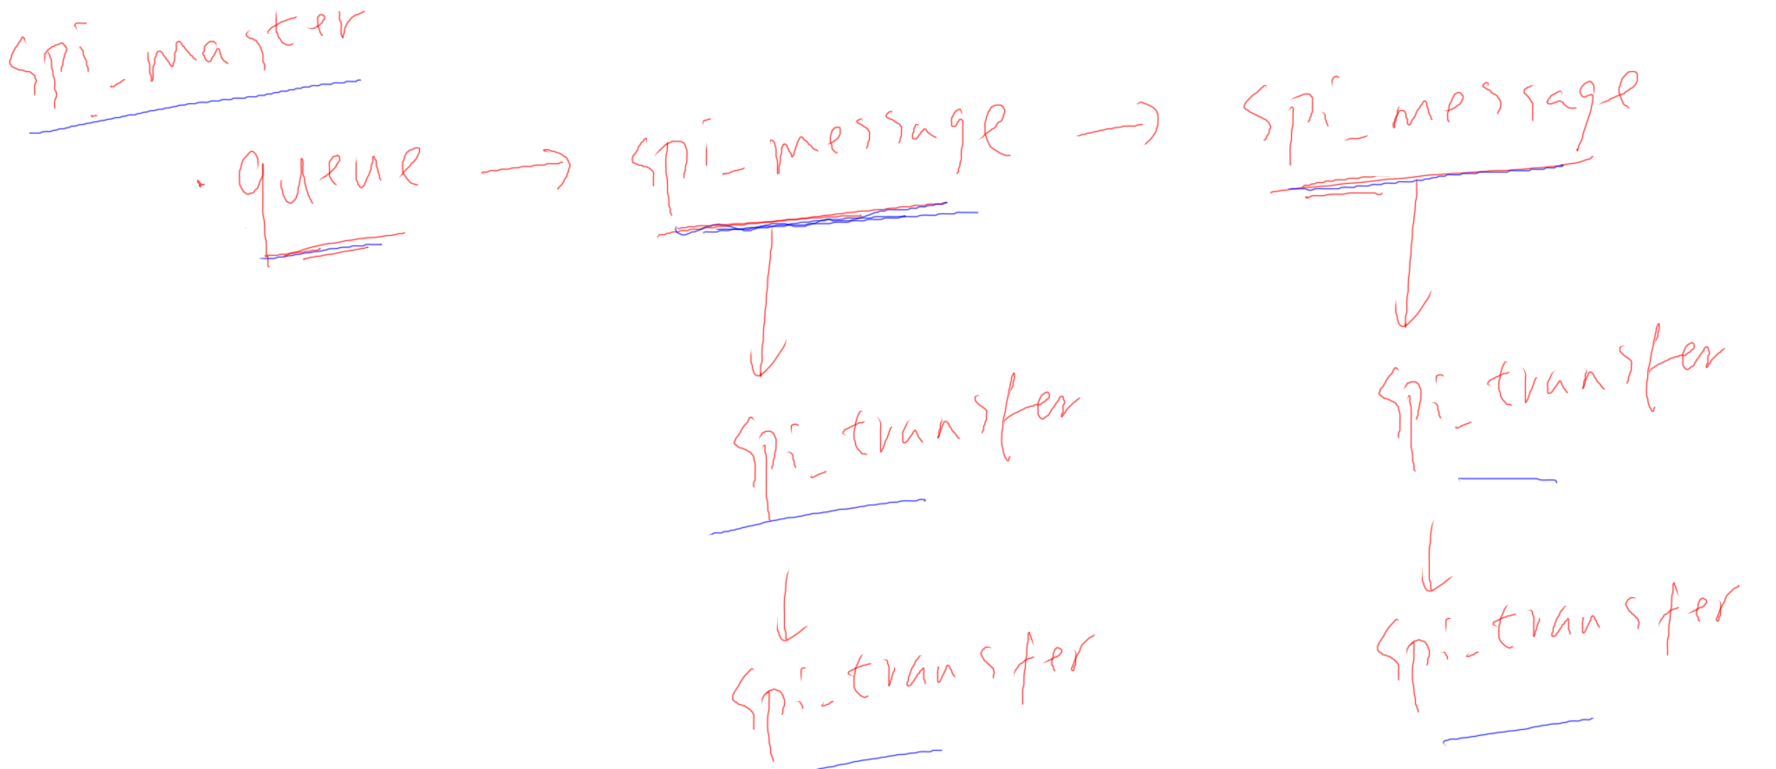 spi_master
.queue → spi_message → spi_message
spi_transfer spi_transfer
spi_transfer spi_transfer